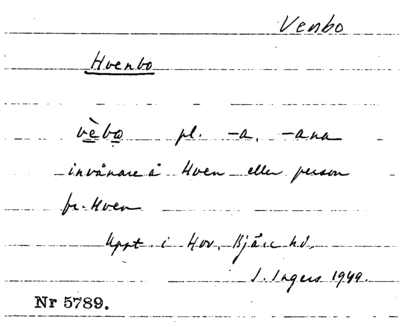 Venbo
Hvenbo
vèbo pl. -a, -ana
invånare å Hven eller person
fr. Hven
Uppt. i Hov. Bjäre hd.
I. Ingers 1949.
Nr 5789.